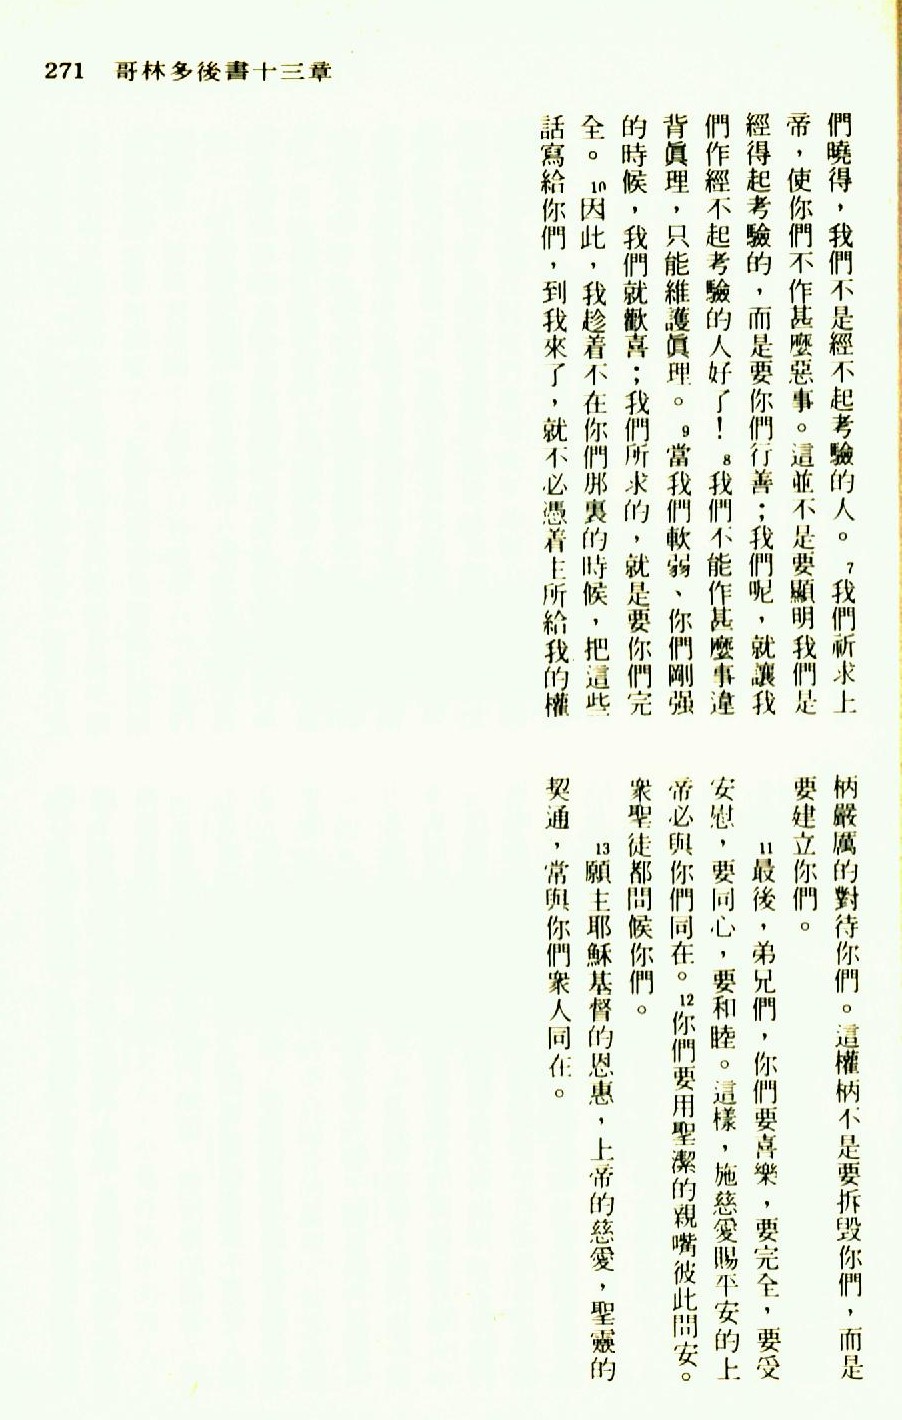 271 哥林多後書十三章
們曉得，我們不是經不起考驗的人。7我們祈求上
帝，使你們不作甚麼惡事。這並不是要顯明我們是
經得起考驗的，而是要你們行善；我們呢，就讓我
們作經不起考驗的人好了！8我們不能作甚麼事違
背眞理，只能維護眞理。9當我們軟弱、你們剛强
的時候，我們就歡喜；我們所求的，就是要你們完
全。10因此，我趁着不在你們那裏的時候，把這些
話寫給你們，到我來了，就不必憑着主所給我的權
柄嚴厲的對待你們。這權柄不是要拆毀你們，而是
要建立你們。
11最後，弟兄們，你們要喜樂，要完全，要受
安慰，要同心，要和睦。這樣，施慈愛賜平安的上
帝必與你們同在。12你們要用聖潔的親嘴彼此問安。
衆聖徒都問候你們。
13願主耶穌基督的恩惠，上帝的慈愛，聖靈的
契通，常與你們衆人同在。